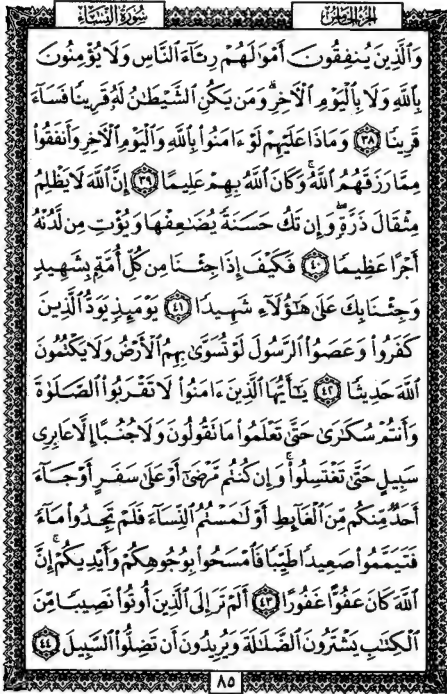 الجزء الخامس سورة النساء
وَٱلَّذِينَ يُنفِقُونَ أَمْوَٰلَهُمْ رِئَآءَ ٱلنَّاسِ وَلَا يُؤْمِنُونَ
بِٱللَّهِ وَلَا بِٱلْيَوْمِ ٱلْءَاخِرِ ۗ وَمَن يَكُنِ ٱلشَّيْطَٰنُ لَهُۥ قَرِينًا فَسَآءَ
قَرِينًا ٣٨ وَمَاذَا عَلَيْهِمْ لَوْ ءَامَنُوا۟ بِٱللَّهِ وَٱلْيَوْمِ ٱلْءَاخِرِ وَأَنفَقُوا۟
مِمَّا رَزَقَهُمُ ٱللَّهُ ۚ وَكَانَ ٱللَّهُ بِهِمْ عَلِيمًا ٣٩ إِنَّ ٱللَّهَ لَا يَظْلِمُ
مِثْقَالَ ذَرَّةٍ ۖ وَإِن تَكُ حَسَنَةً يُضَٰعِفْهَا وَيُؤْتِ مِن لَّدُنْهُ
أَجْرًا عَظِيمًا ٤٠ فَكَيْفَ إِذَا جِئْنَا مِن كُلِّ أُمَّةٍۭ بِشَهِيدٍ
وَجِئْنَا بِكَ عَلَىٰ هَٰٓؤُلَآءِ شَهِيدًا ٤١ يَوْمَئِذٍ يَوَدُّ ٱلَّذِينَ
كَفَرُوا۟ وَعَصَوُا۟ ٱلرَّسُولَ لَوْ تُسَوَّىٰ بِهِمُ ٱلْأَرْضُ وَلَا يَكْتُمُونَ
ٱللَّهَ حَدِيثًا ٤٢ يَٰٓأَيُّهَا ٱلَّذِينَ ءَامَنُوا۟ لَا تَقْرَبُوا۟ ٱلصَّلَوٰةَ
وَأَنتُمْ سُكَٰرَىٰ حَتَّىٰ تَعْلَمُوا۟ مَا تَقُولُونَ وَلَا جُنُبًا إِلَّا عَابِرِى
سَبِيلٍ حَتَّىٰ تَغْتَسِلُوا۟ ۚ وَإِن كُنتُم مَّرْضَىٰٓ أَوْ عَلَىٰ سَفَرٍ أَوْ جَآءَ
أَحَدٌ مِّنكُم مِّنَ ٱلْغَآئِطِ أَوْ لَٰمَسْتُمُ ٱلنِّسَآءَ فَلَمْ تَجِدُوا۟ مَآءً
فَتَيَمَّمُوا۟ صَعِيدًا طَيِّبًا فَٱمْسَحُوا۟ بِوُجُوهِكُمْ وَأَيْدِيكُمْ ۗ إِنَّ
ٱللَّهَ كَانَ عَفُوًّا غَفُورًا ٤٣ أَلَمْ تَرَ إِلَى ٱلَّذِينَ أُوتُوا۟ نَصِيبًا مِّنَ
ٱلْكِتَٰبِ يَشْتَرُونَ ٱلضَّلَٰلَةَ وَيُرِيدُونَ أَن تَضِلُّوا۟ ٱلسَّبِيلَ ٤٤
٨٥